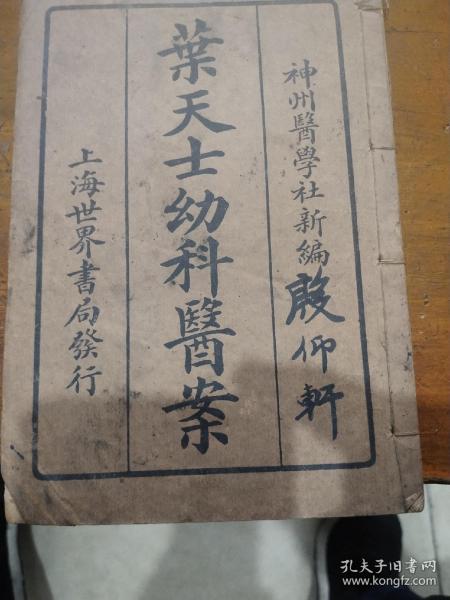 神州醫學社新編
殷仰軒
葉天士幼科醫案
上海世界書局發行
孔夫子旧书网
www.kongfz.com